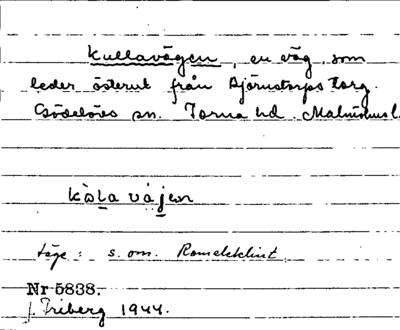 Kullavägen, en väg, som
leder österut från Björnstorps torg.
Gödelövs sn. Torna hd. Malmöhus l.
kòla våjen
läge: s. om. Romeleklint
Nr 5838.
J. Friberg 1944.